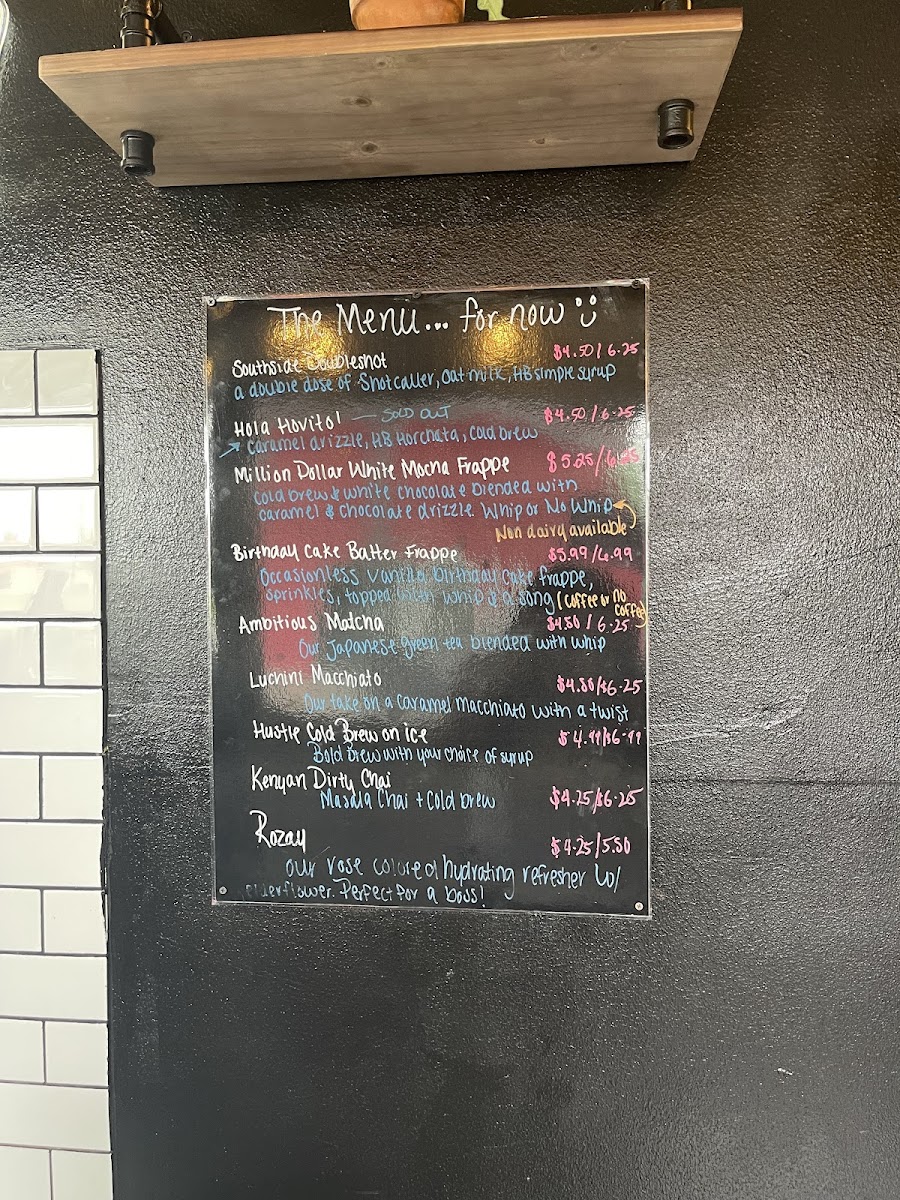 The Menu... for now
Southside Doubleshot $4.50 / 6.25
a double dose of Shotcaller, oat milk, HB simple syrup
Hola Hovito! — SOLD OUT $4.50 / 6.25
caramel drizzle, HB Horchata, cold brew
Million Dollar White Mocha Frappe $5.25/6.25
cold brew & white chocolate blended with
caramel & chocolate drizzle. Whip or No Whip
Non dairy available
Birthday Cake Batter Frappe $5.99/6.99
Occasionless vanilla birthday cake frappe,
sprinkles, topped with whip & a song (coffee or no
coffee)
Ambitious Matcha $4.50 / 6.25
Our Japanese green tea blended with whip
Luchini Macchiato $4.50/$6.25
Our take on a caramel macchiato with a twist
Hustle Cold Brew on ice $4.99/$6.99
Bold brew with your choice of syrup
Kenyan Dirty Chai
Masala Chai + cold brew $4.25/$6.25
Rozay $4.25/5.50
our rose colored hydrating refresher w/
elderflower. Perfect for a boss!